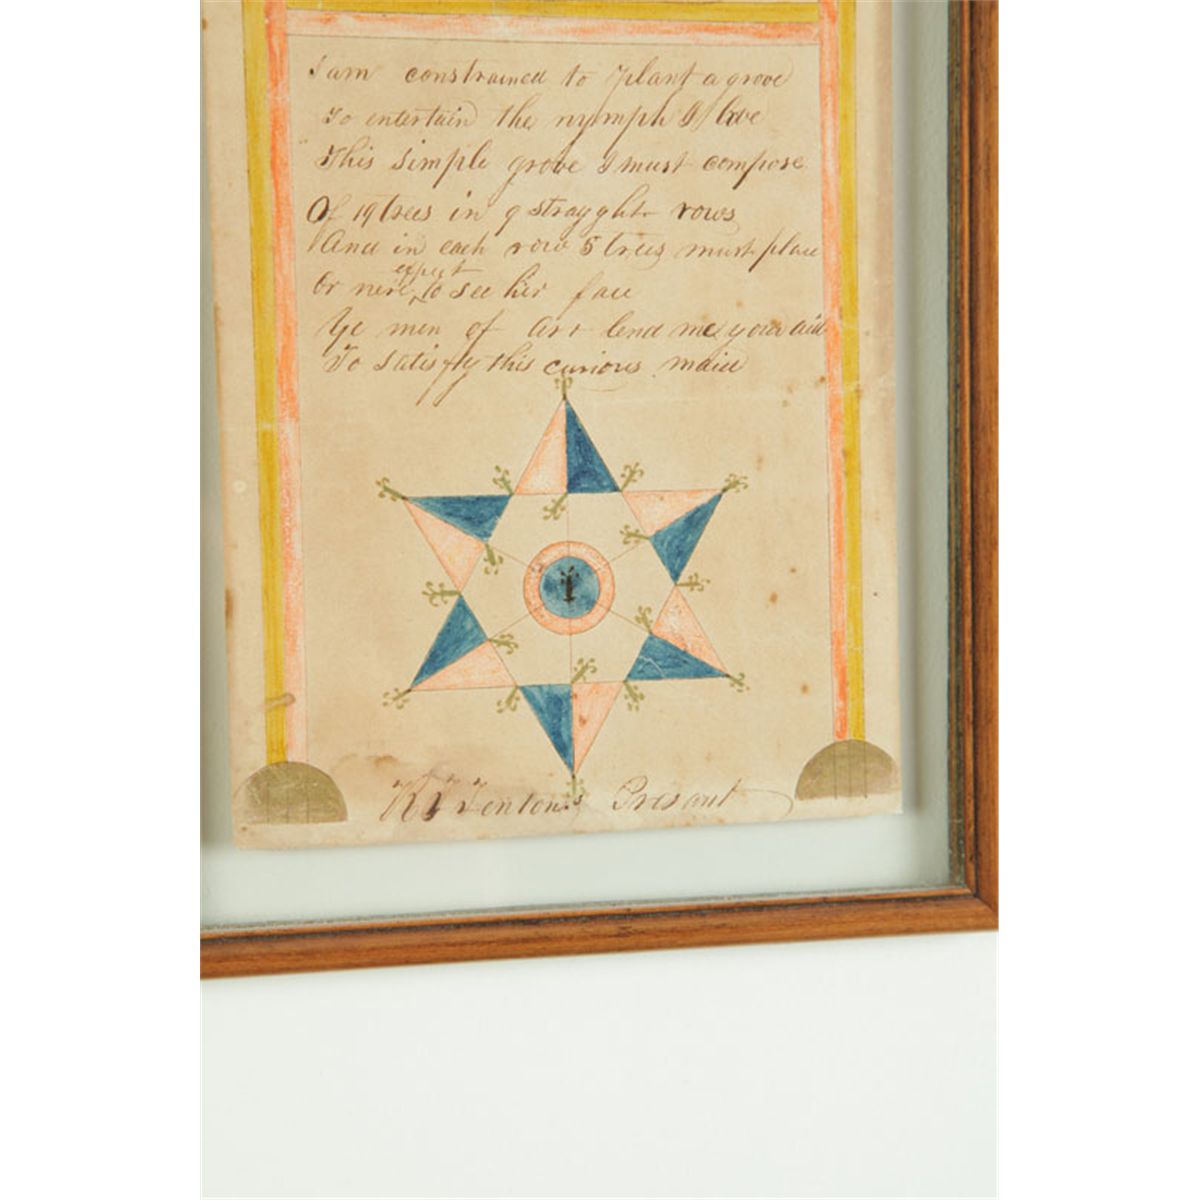 I am constrained to plant a grove
To entertain the nymph I love
This simple grove I must compose
Of 19 trees in 9 strayght rows
And in each row 5 trees must place
Or nere expect to see her face
Ye men of art lend me your aid
To satisfy this curious maid
Fentons Presant